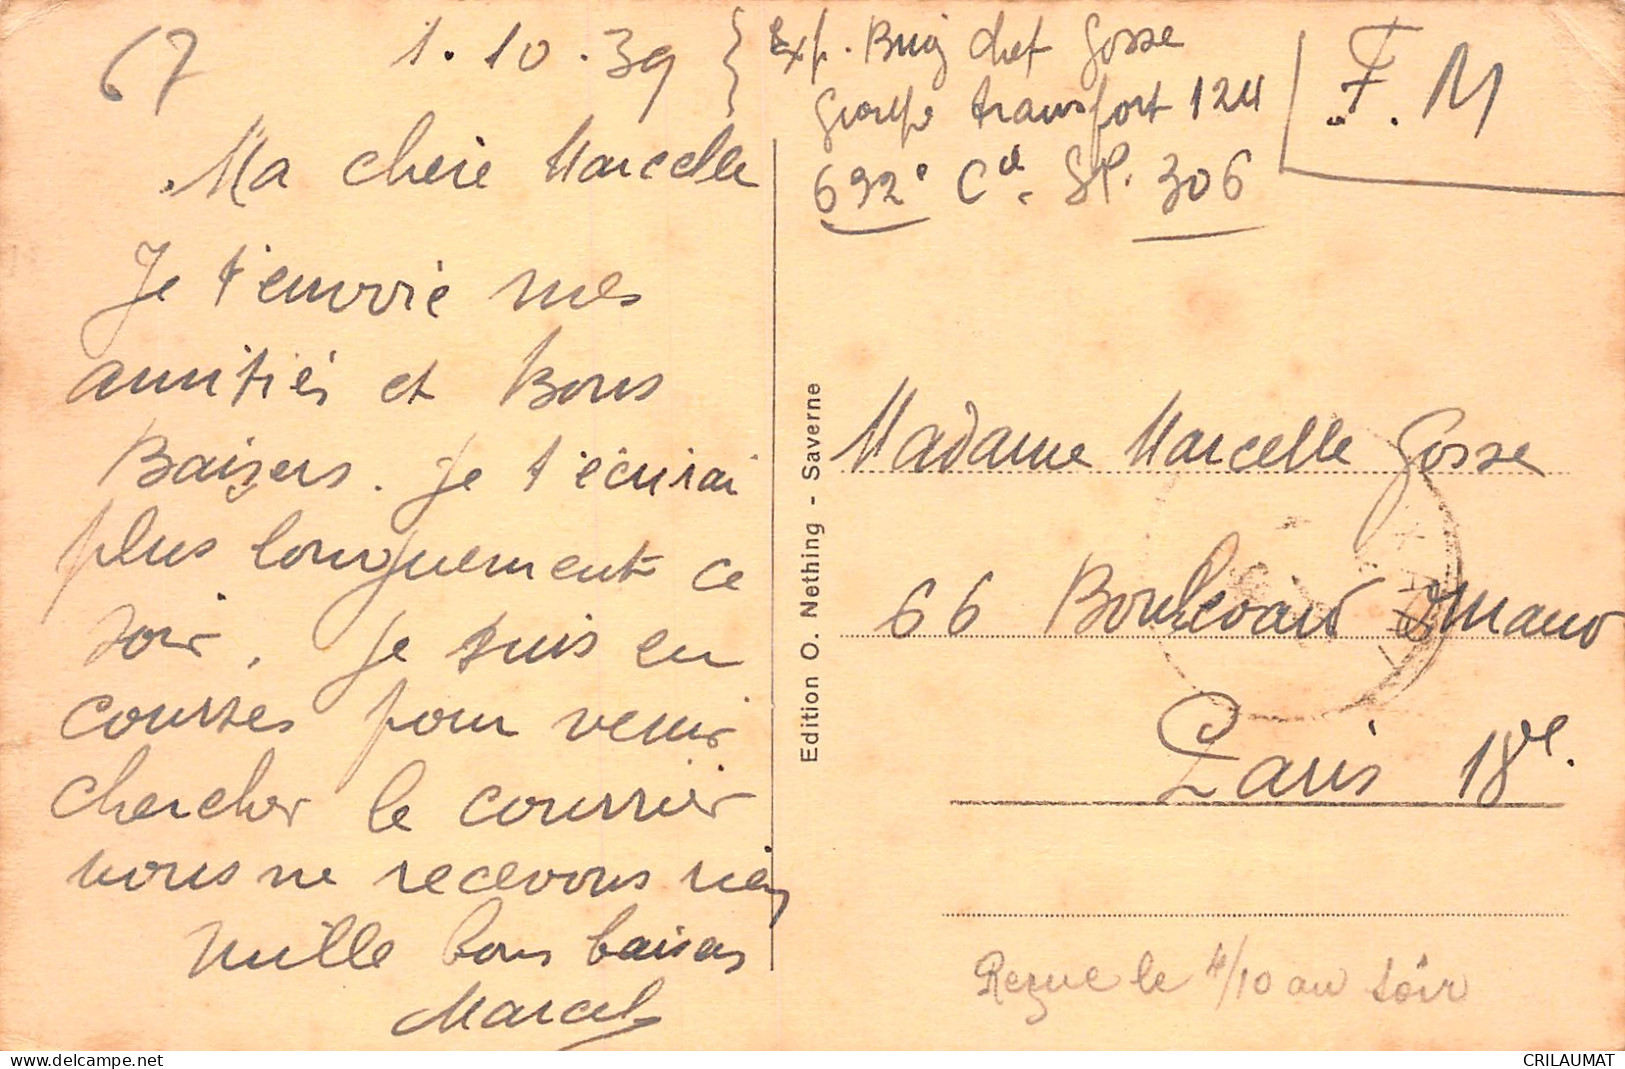 67
1.10.39
Ma chère Marcelle
Je t'envoie mes
amitiés et Bons
Baisers. Je t'écrirai
plus longuement ce
soir. Je suis en
courses pour venir
chercher le courrier
nous ne recevons rien
Mille bons baisers
Marcel
Exp. Brig chef Gosse
Groupe transport 124
692e Cie. SP. 306
F.M
Edition O. Nething - Saverne
Madame Marcelle Gosse
66 Boulevard Ornano
Paris 18e.
Reçue le 4/10 au soir
www.delcampe.net
CRILAUMAT